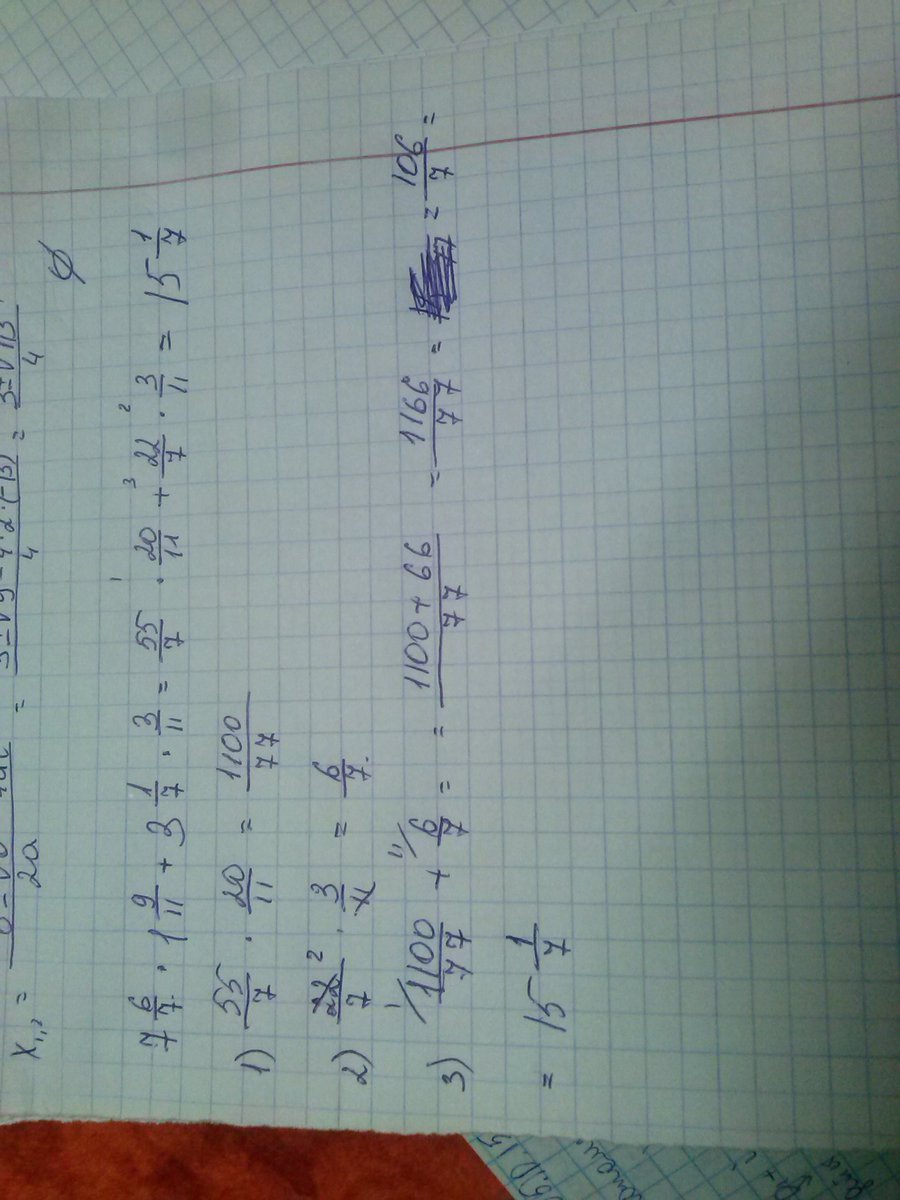 x₁,₂ = 2a = = 3±√13 / 4
∅
7 6/7 · 1 9/11 + 3 1/7 · 3/11 = 55/7 ·¹ 20/11 +³ 22/7 ·² 3/11 = 15 1/7
1) 55/7 · 20/11 = 1100/77
2) 22²/7 · 3/11 = 6/7
3) ¹/1100/77 + ¹¹/6/7 = = 1100+66 / 77 = 1166/77 = = 106/7 =
= 15 1/7